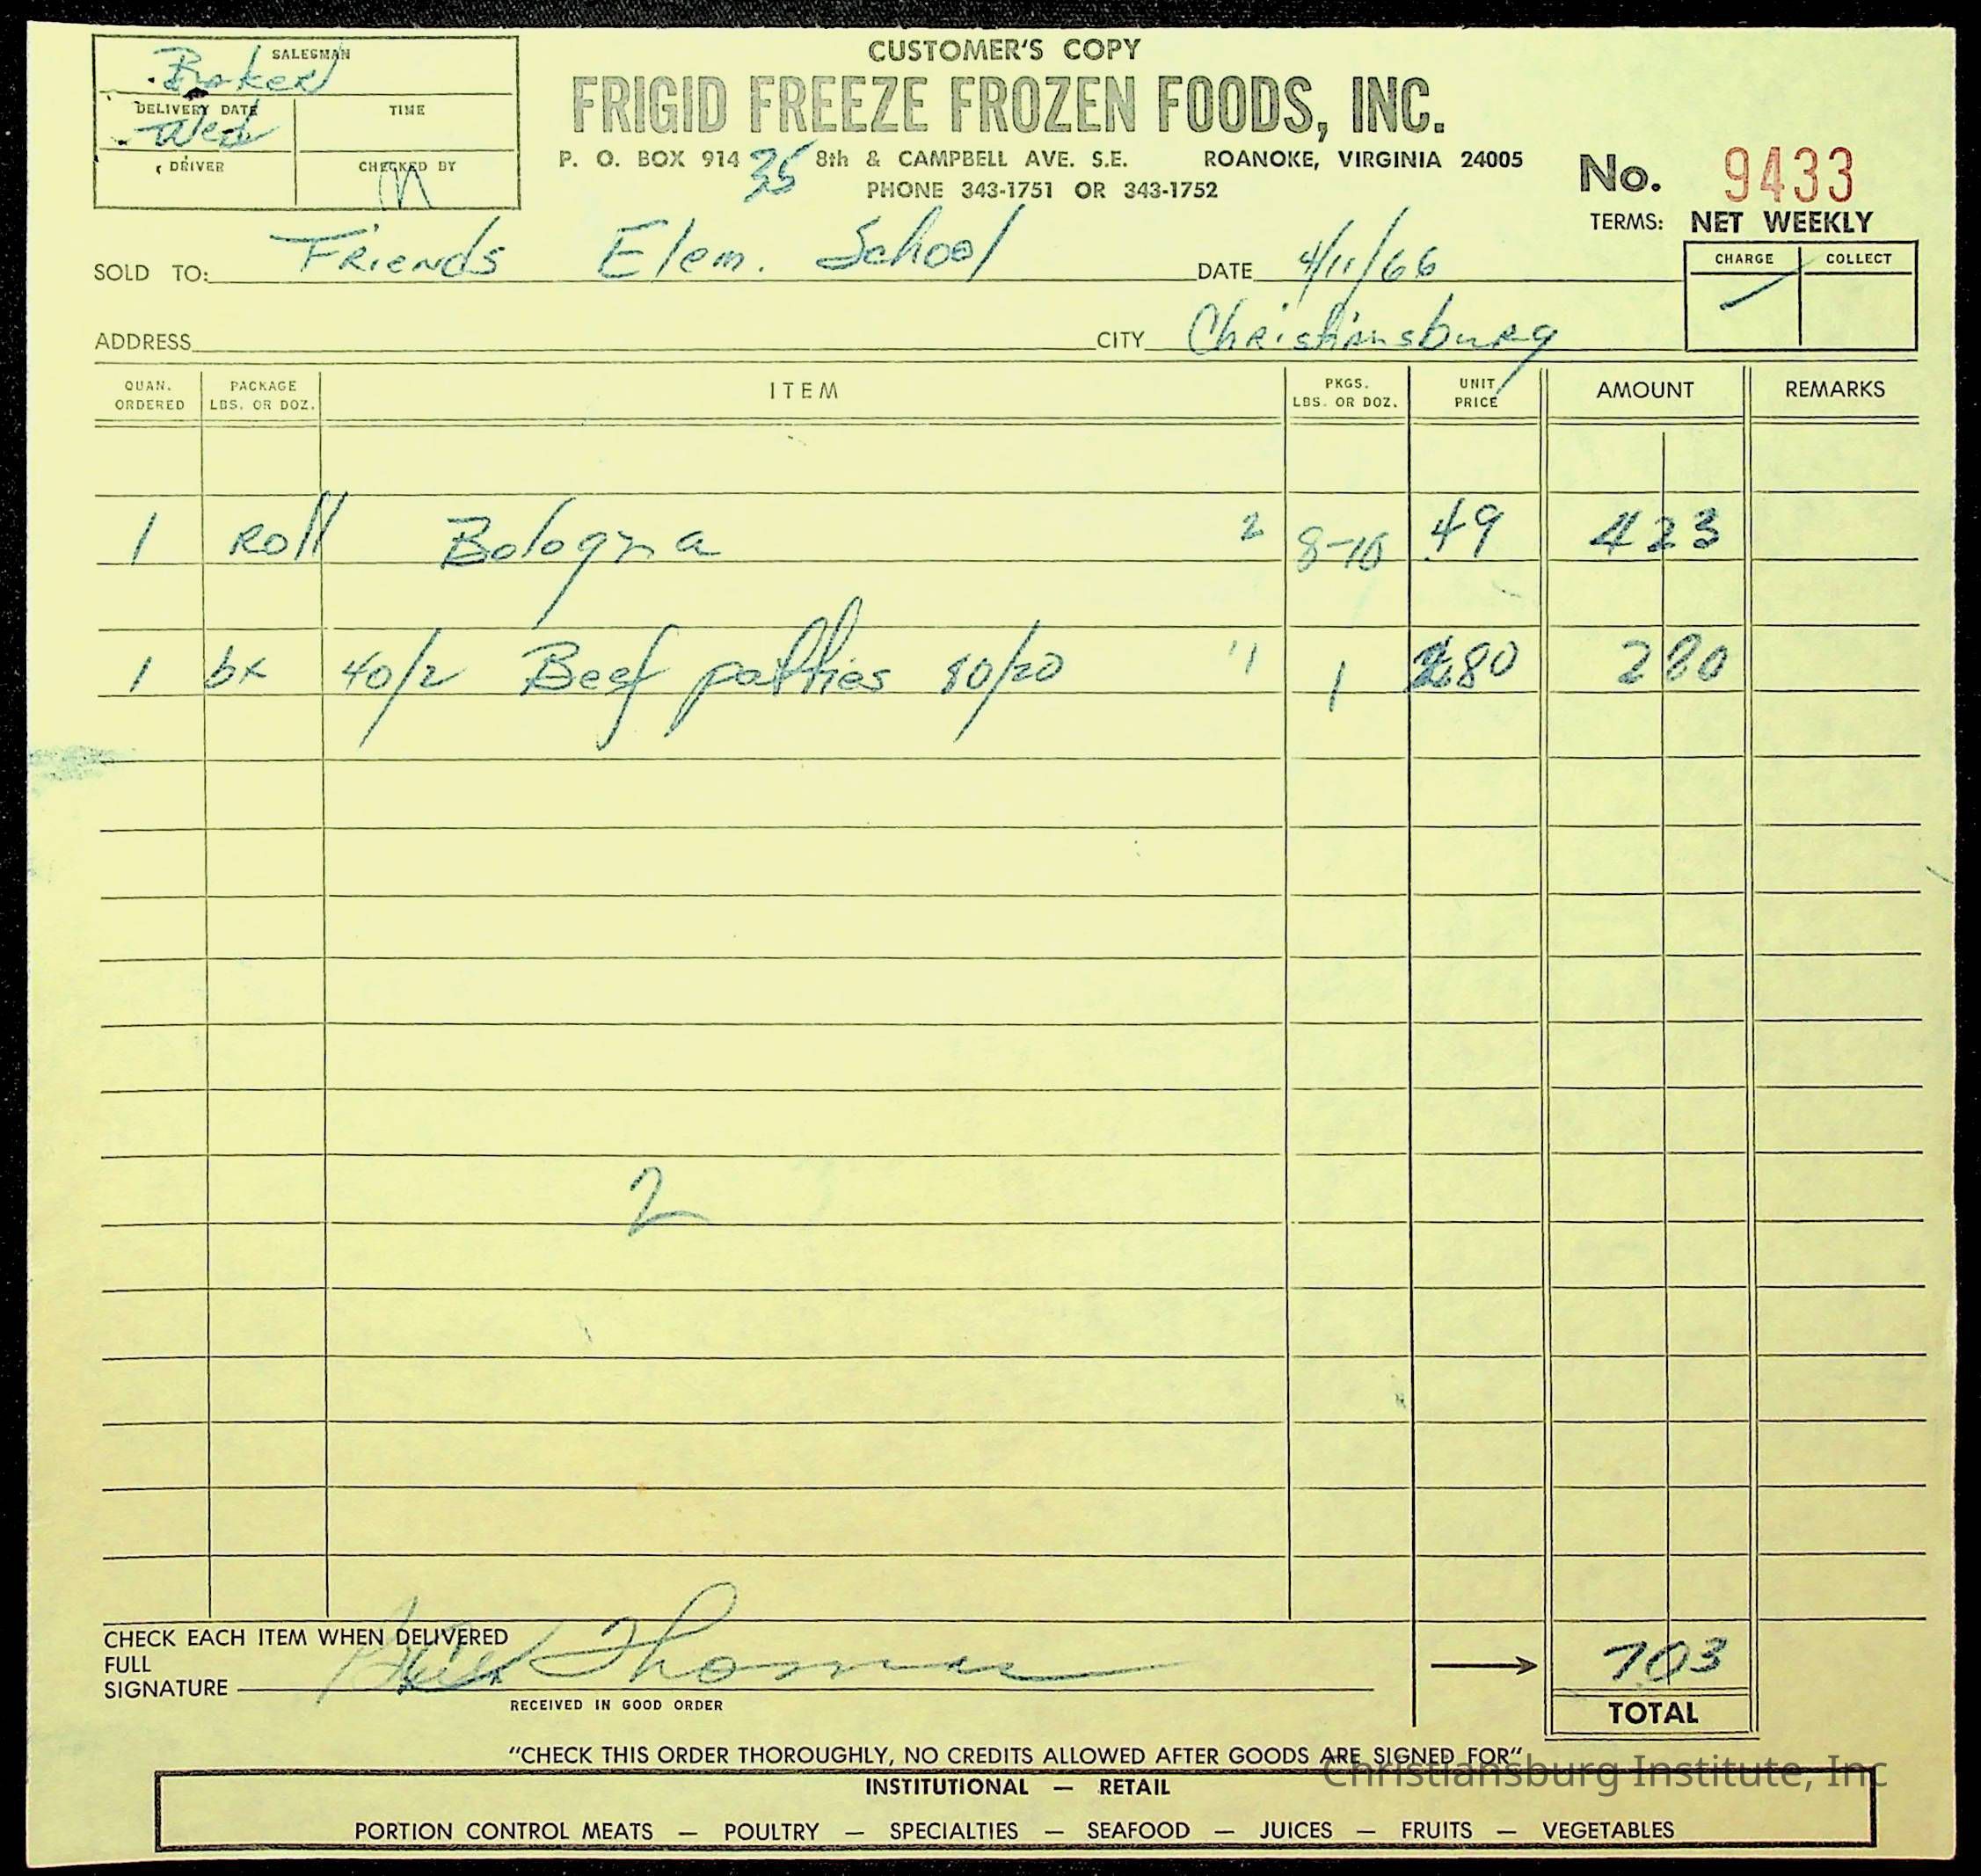 CUSTOMER'S COPY
FRIGID FREEZE FROZEN FOODS, INC.
P. O. BOX 914 8th & CAMPBELL AVE. S.E. ROANOKE, VIRGINIA 24005
35
PHONE 343-1751 OR 343-1752
SALESMAN
Baker
DELIVERY DATE TIME
Wed
DRIVER CHECKED BY
No. 9433
TERMS: NET WEEKLY
CHARGE COLLECT
SOLD TO: Friends Elem. School DATE 4/11/66
ADDRESS CITY Christiansburg
QUAN. ORDERED PACKAGE LBS. OR DOZ. ITEM PKGS. LBS. OR DOZ. UNIT PRICE AMOUNT REMARKS
1 Roll Bologna 2 8-10 49 423
1 bx 40/2 Beef patties 80/20 " 1 280 280
2
CHECK EACH ITEM WHEN DELIVERED
FULL
SIGNATURE Thomas
RECEIVED IN GOOD ORDER
703
TOTAL
"CHECK THIS ORDER THOROUGHLY, NO CREDITS ALLOWED AFTER GOODS ARE SIGNED FOR"
Christiansburg Institute, Inc
INSTITUTIONAL — RETAIL
PORTION CONTROL MEATS — POULTRY — SPECIALTIES — SEAFOOD — JUICES — FRUITS — VEGETABLES